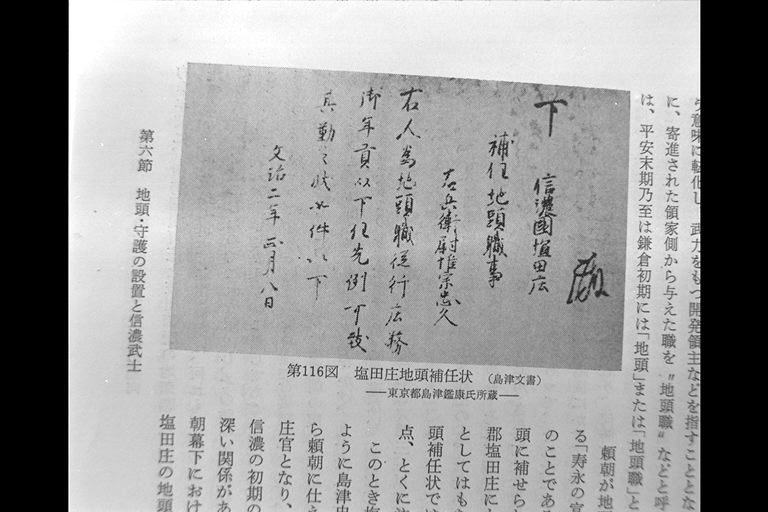 う意味に転化し、武力をもつ開発領主などを指すこととな
に、寄進された領家側から与えた職を〝地頭職〟などと呼
は、平安末期乃至は鎌倉初期には「地頭」または「地頭職」と
下
信濃国塩田庄
補任地頭職事
左兵衛尉惟宗忠久
右人為地頭職従行庄務
御年貢以下任先例可致
其勤之状如件以下
文治二年正月八日
第116図 塩田庄地頭補任状 (島津文書)
――東京都島津鑑康氏所蔵――
頼朝が地
る「寿永の宣
のことであ
頭に補せら
郡塩田庄に
としてはも
頭補任状で
点、とくに
このとき
ように島津
ら頼朝に仕え
庄官となり、
信濃の初期の
深い関係があ
朝幕下におけ
塩田庄の地頭
第六節 地頭・守護の設置と信濃武士